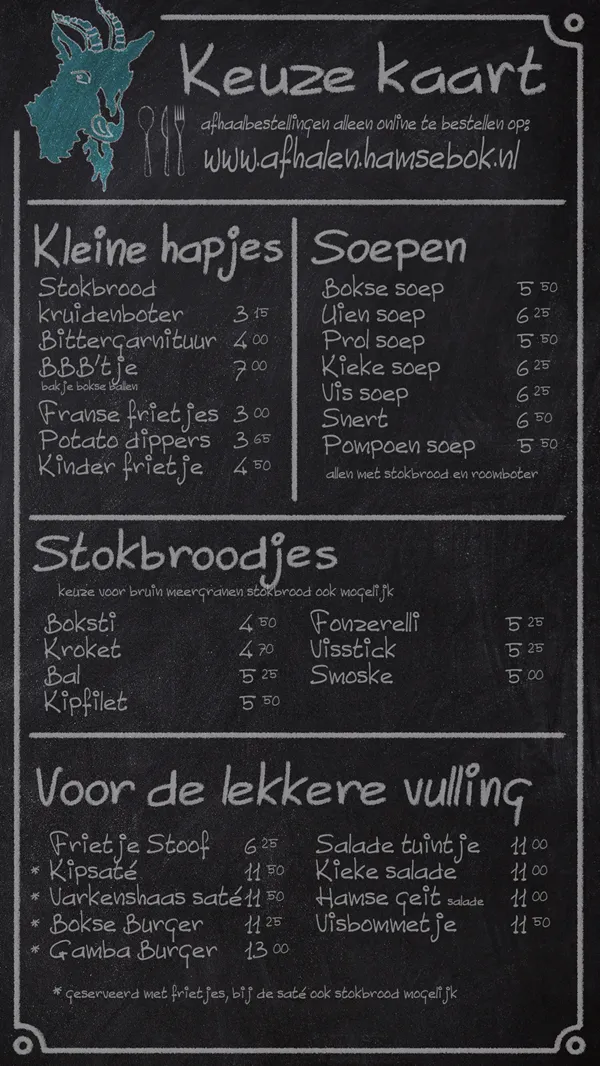 Keuze kaart
afhaalbestellingen alleen online te bestellen op:
www.afhalen.hamsebok.nl
Kleine hapjes
Stokbrood
kruidenboter 3 15
Bittergarnituur 4 00
BBB'tje 7 00
bakje bokse ballen
Franse frietjes 3 00
Potato dippers 3 65
Kinder frietje 4 50
Soepen
Bokse soep 5 50
Uien soep 6 25
Prol soep 5 50
Kieke soep 6 25
Vis soep 6 25
Snert 6 50
Pompoen soep 5 50
allen met stokbrood en roomboter
Stokbroodjes
keuze voor bruin meergranen stokbrood ook mogelijk
Boksti 4 50
Kroket 4 70
Bal 5 25
Kipfilet 5 50
Fonzerelli 5 25
Visstick 5 25
Smoske 5 00
Voor de lekkere vulling
Frietje Stoof 6 25
* Kipsaté 11 50
* Varkenshaas saté 11 50
* Bokse Burger 11 25
* Gamba Burger 13 00
Salade tuintje 11 00
Kieke salade 11 00
Hamse geit salade 11 00
Visbommetje 11 50
* geserveerd met frietjes, bij de saté ook stokbrood mogelijk